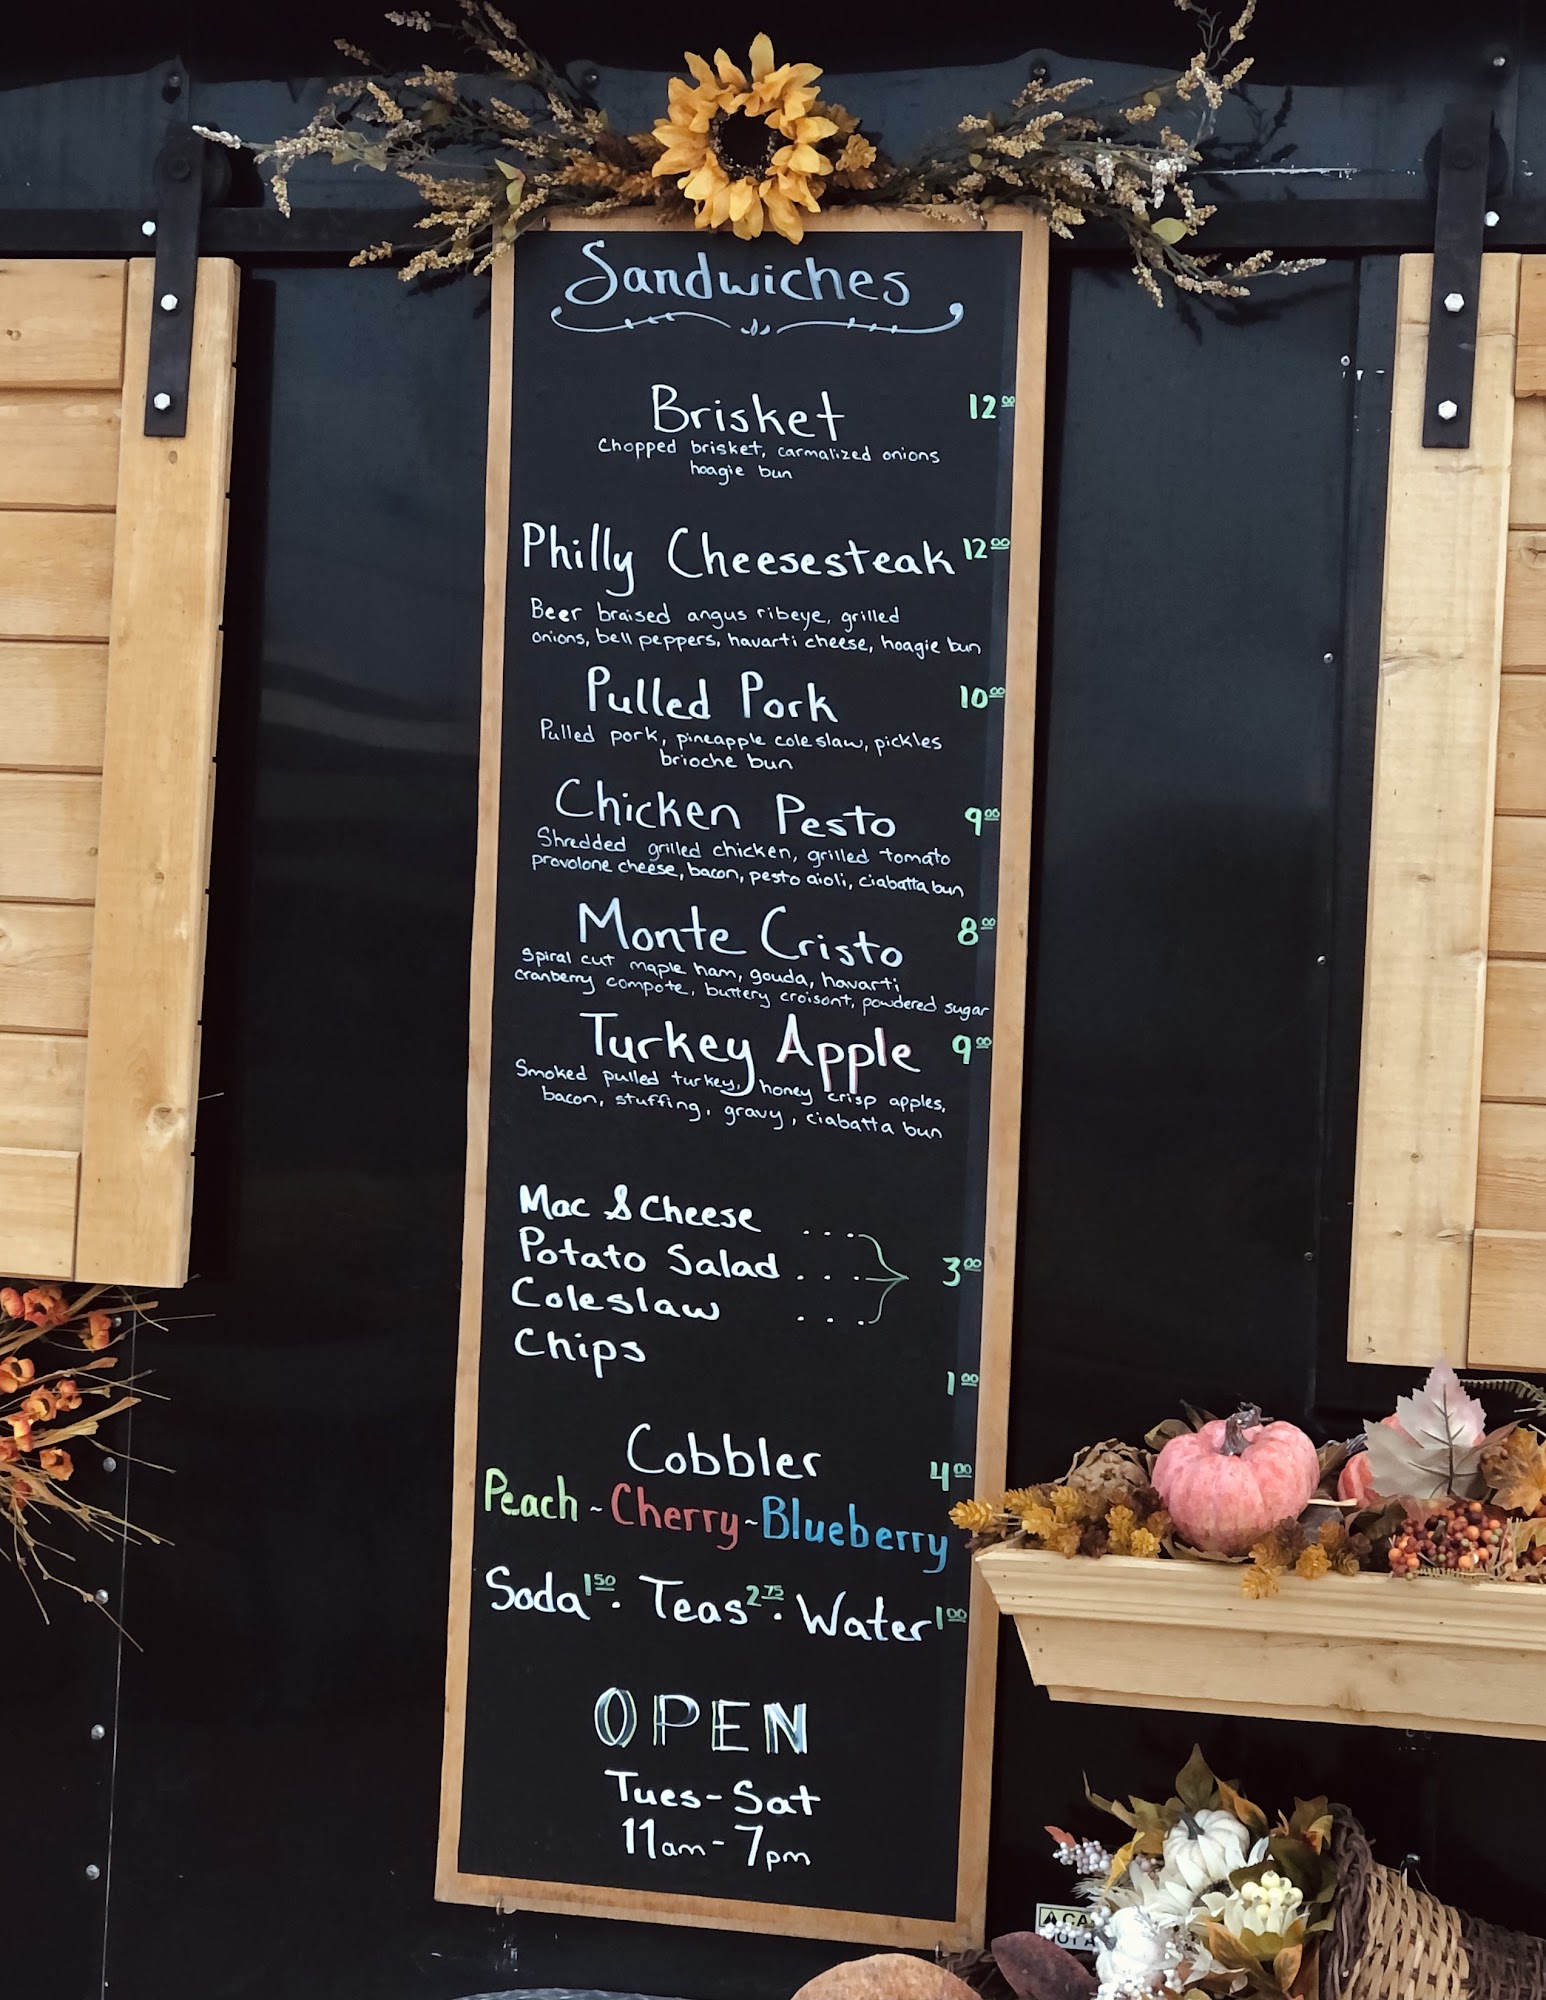 Sandwiches
Brisket 12.00
Chopped brisket, carmalized onions
hoagie bun
Philly Cheesesteak 12.00
Beer braised angus ribeye, grilled
onions, bell peppers, havarti cheese, hoagie bun
Pulled Pork 10.00
Pulled pork, pineapple coleslaw, pickles
brioche bun
Chicken Pesto 9.00
Shredded grilled chicken, grilled tomato
provolone cheese, bacon, pesto aioli, ciabatta bun
Monte Cristo 8.00
Spiral cut maple ham, gouda, havarti
cranberry compote, buttery croisont, powdered sugar
Turkey Apple 9.00
Smoked pulled turkey, honey crisp apples,
bacon, stuffing, gravy, ciabatta bun
Mac & Cheese ....
Potato Salad ... 3.00
Coleslaw ...
Chips 1.00
Cobbler 4.00
Peach ~ Cherry ~ Blueberry
Soda 1.50 · Teas 2.75 · Water 1.00
OPEN
Tues - Sat
11am - 7pm